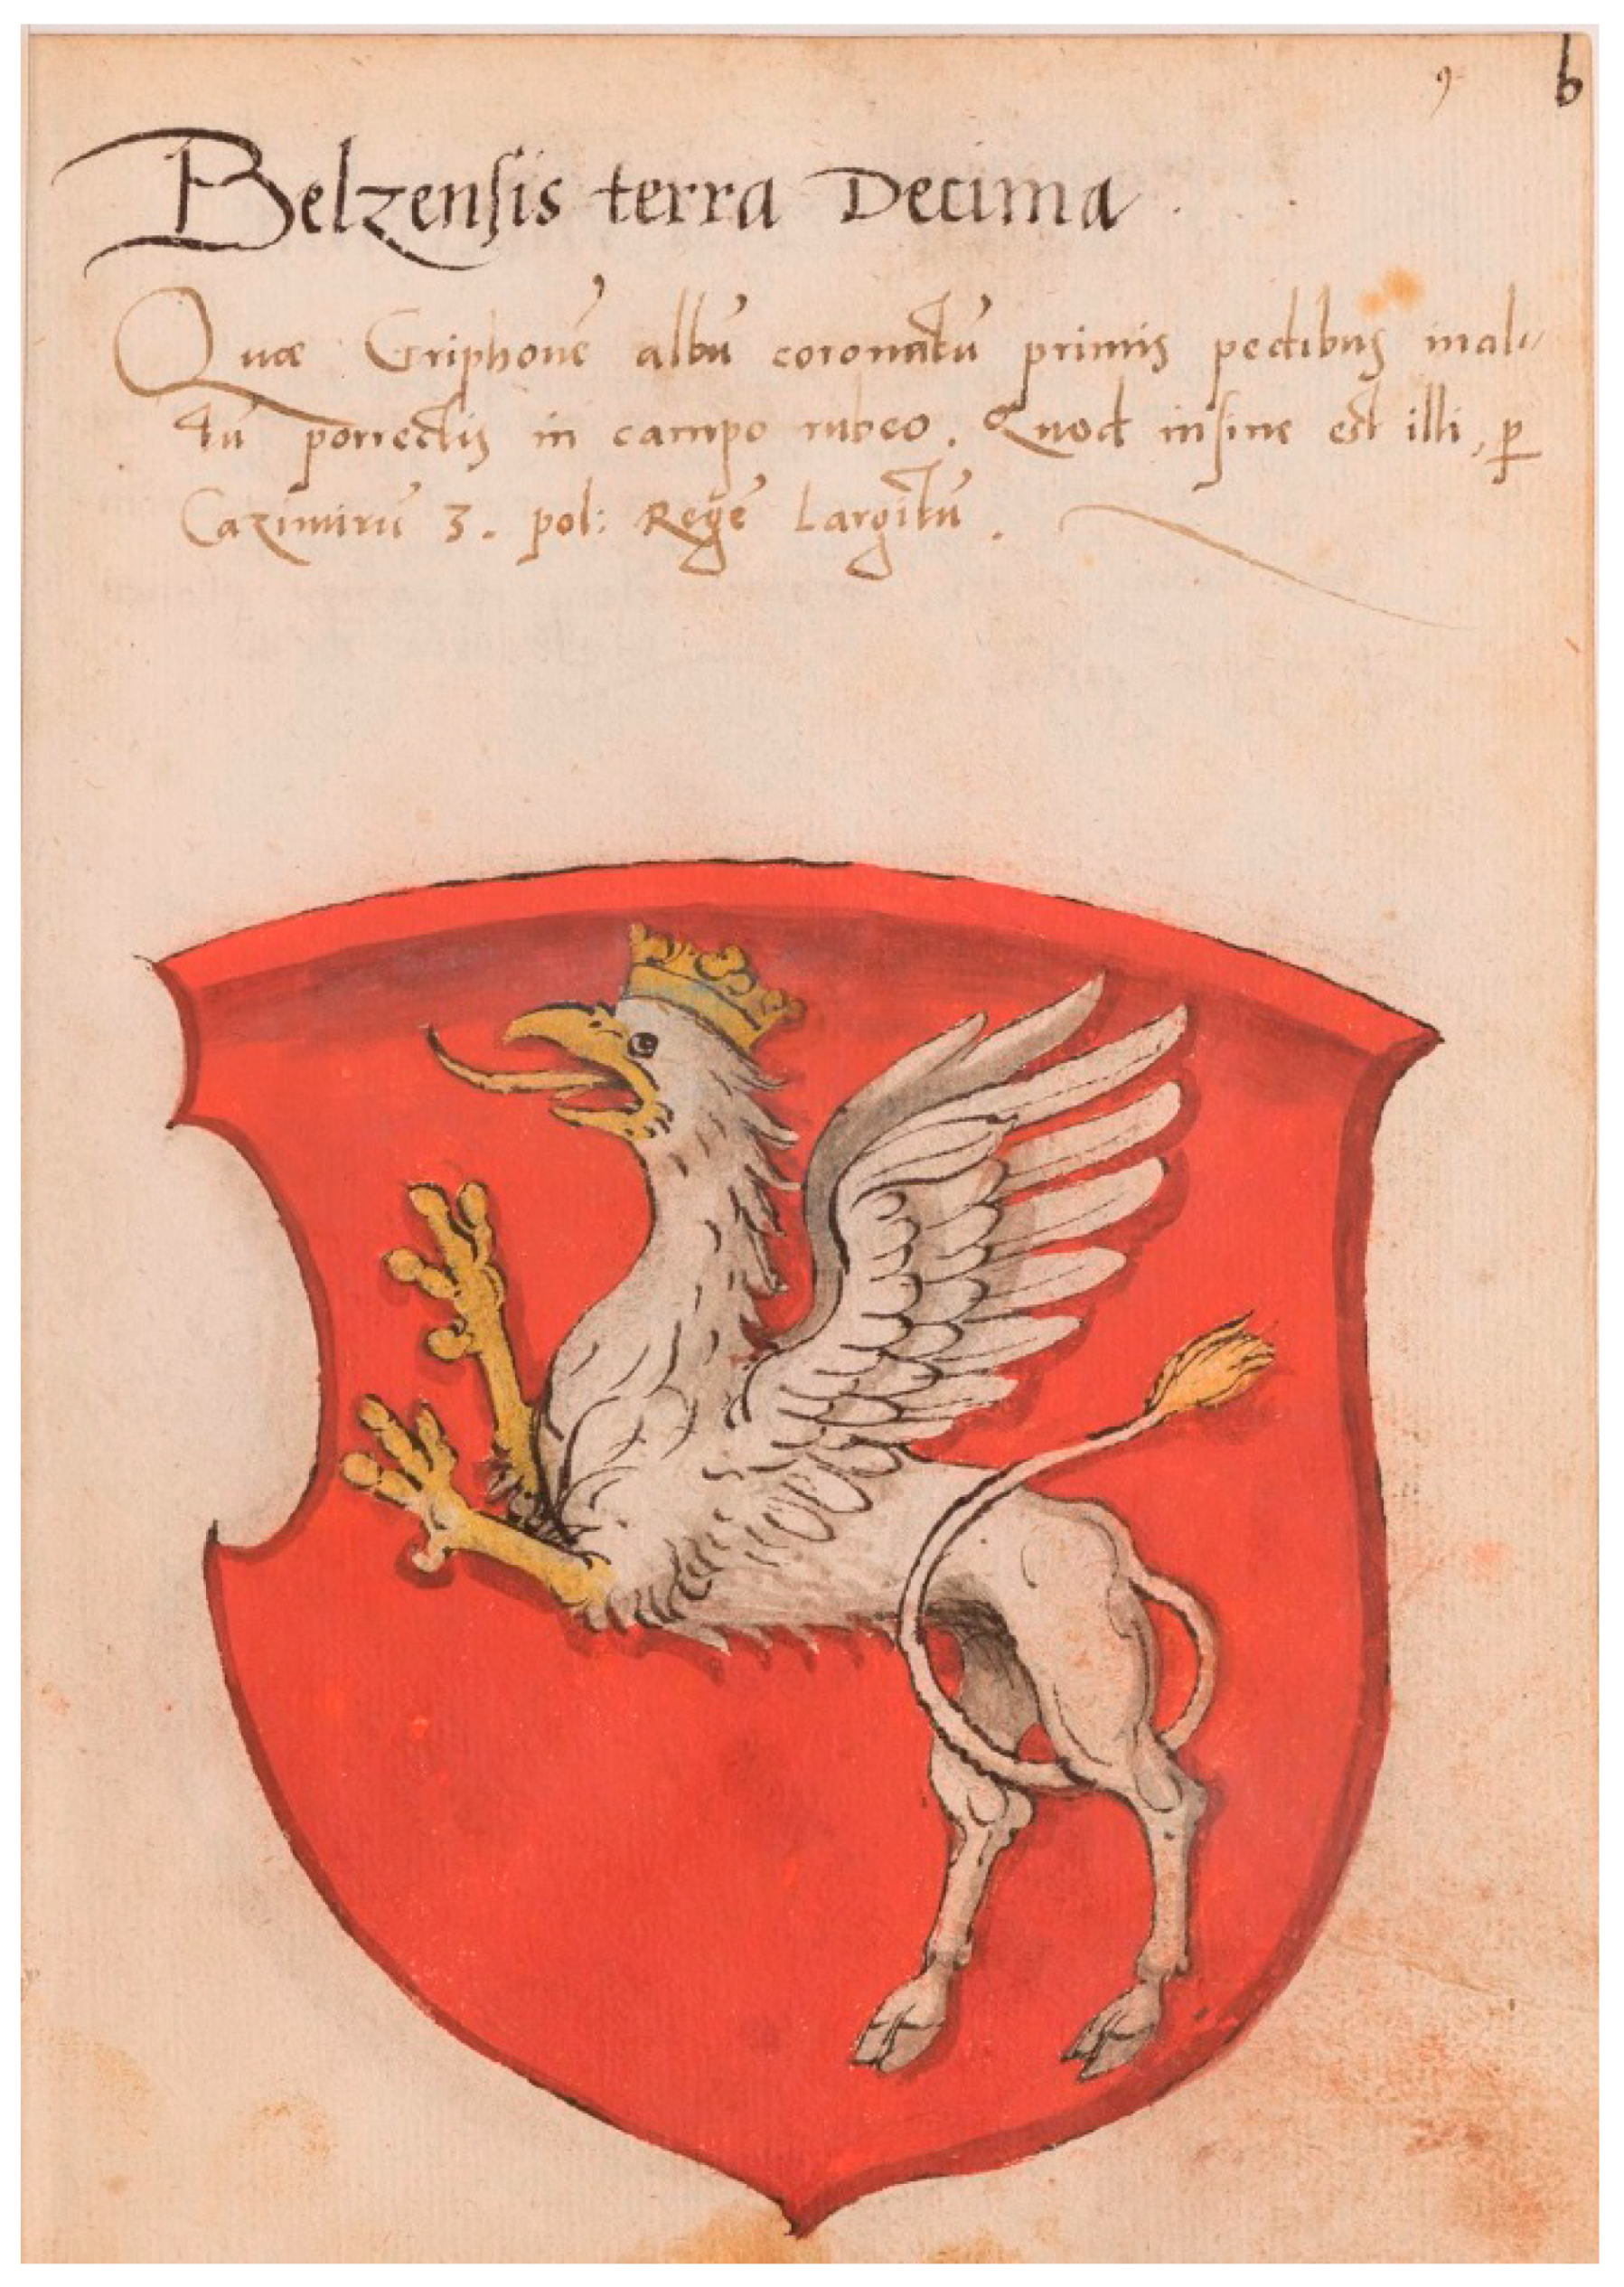 9 b
Belzenſis terra Decima
Quæ Griphonē albū coronatū primis pedibus in al-
tū porrectis in campo rubeo. Quod inſine est illi, ꝑ
Cazimirū 3. pol: Regē Largitū.